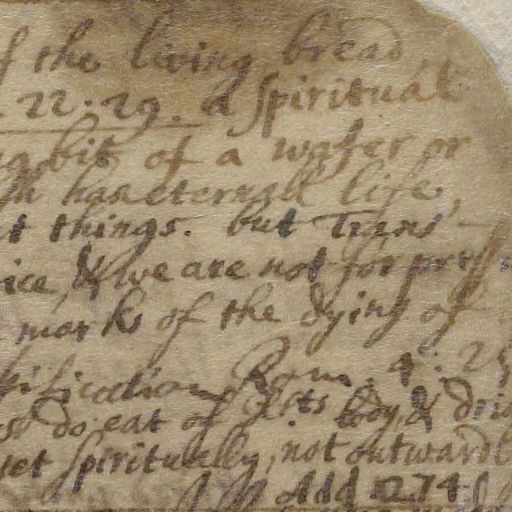 the living bread
22.29. a spiritual
bit of a wafer or
has eternall life,
things. but Trans
ice, & we are not for
marks of the dying of
Rom. 4: 25
do eat of body, & drin
yet spiritually, not outwardl
Add 1274